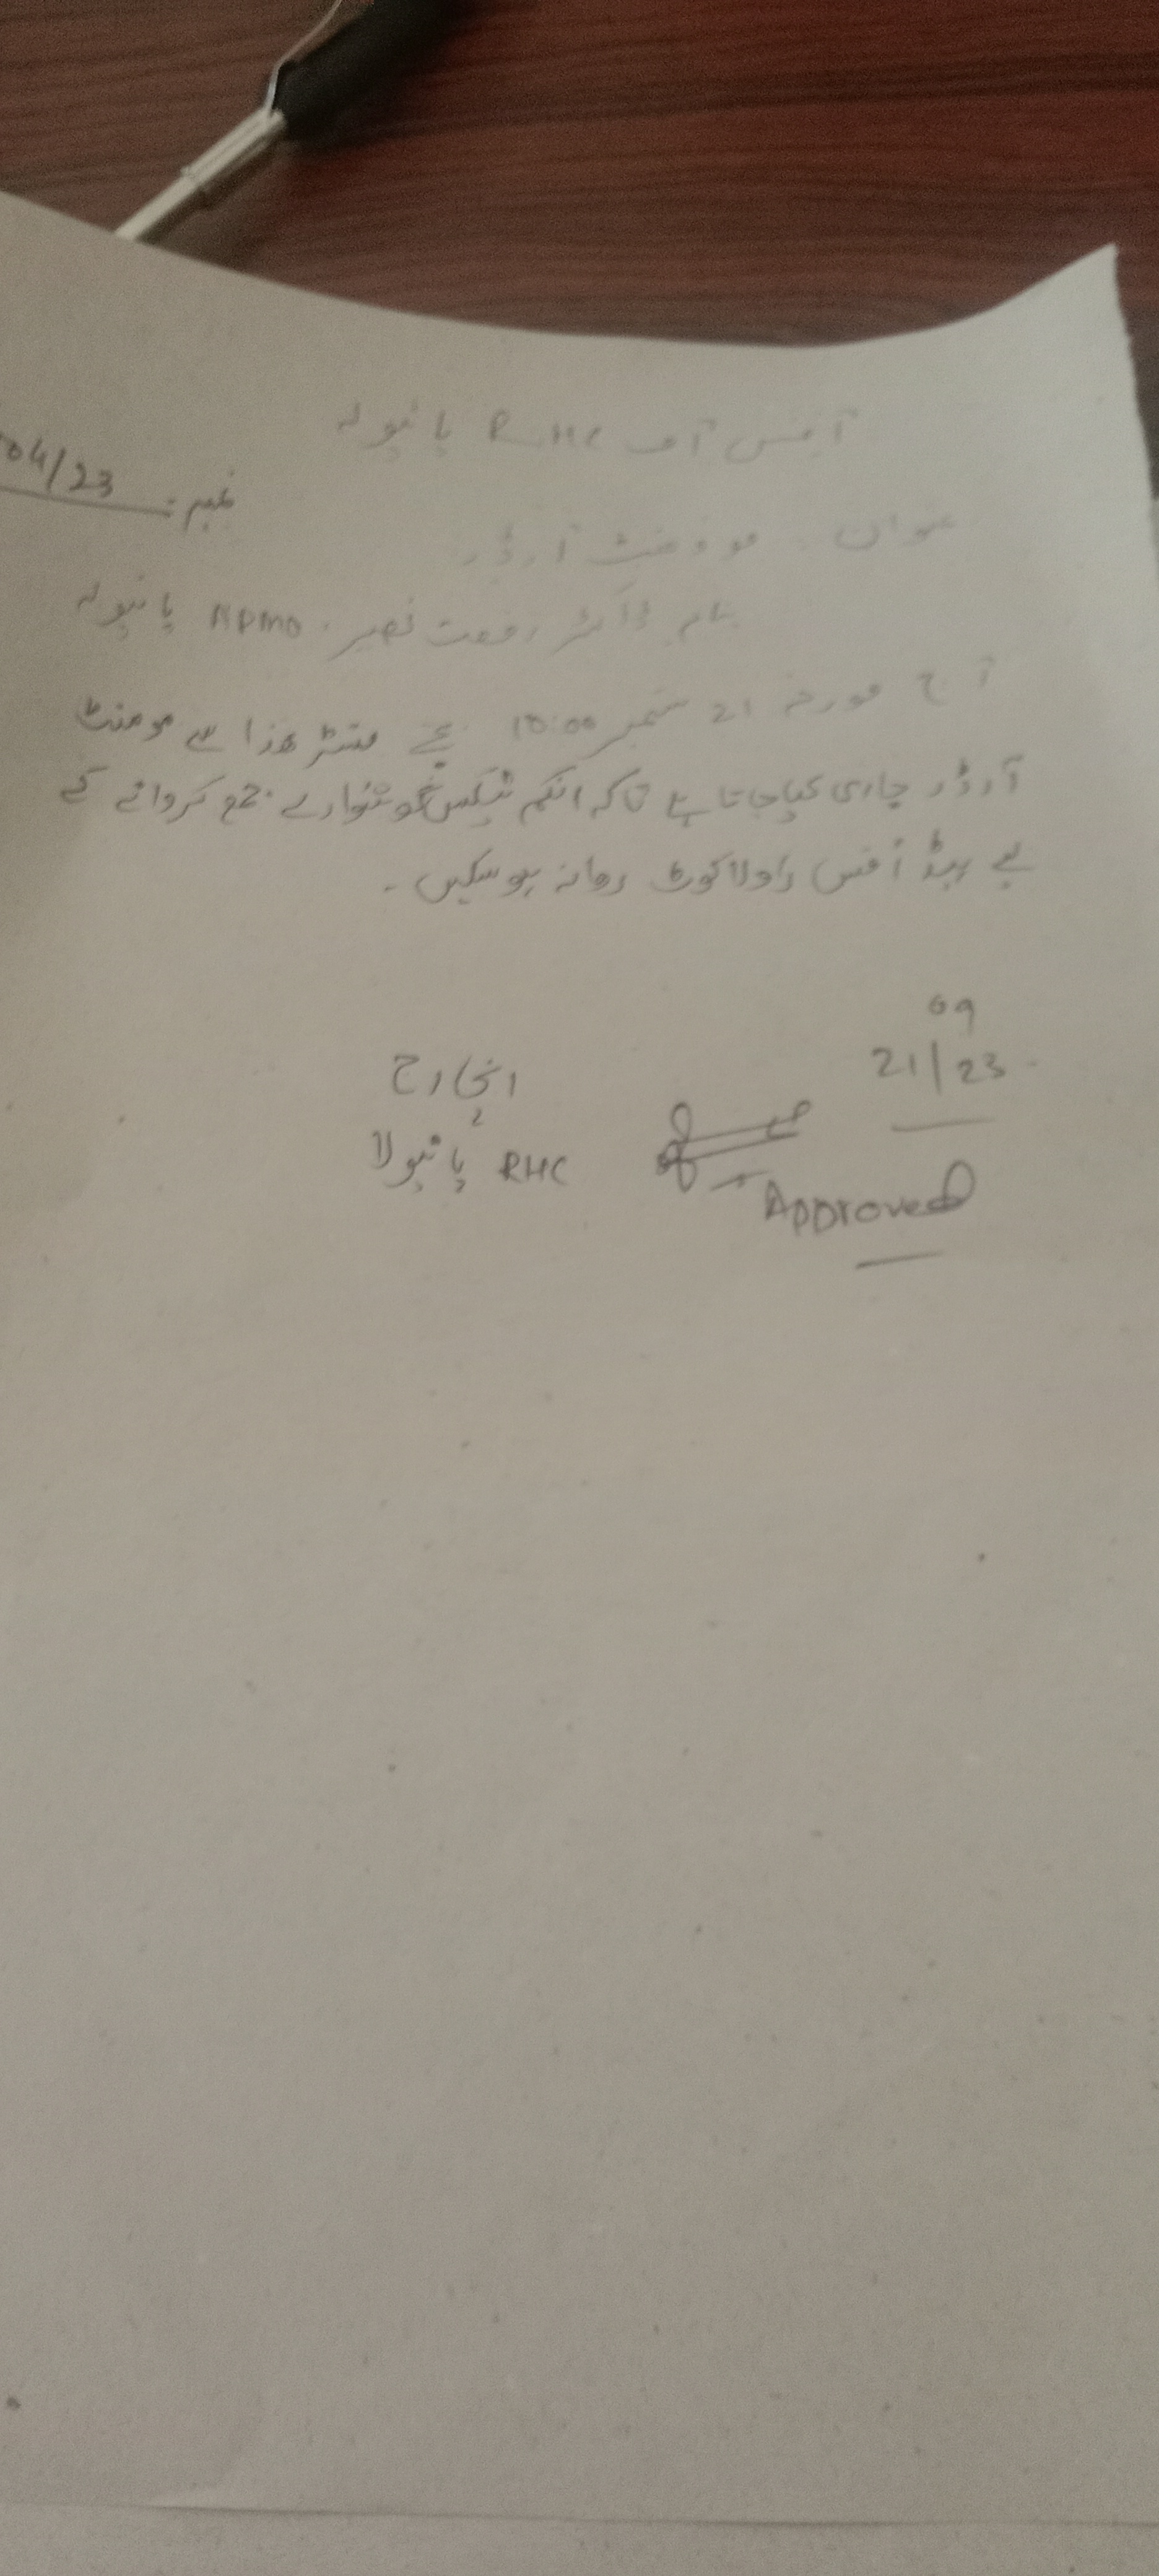 آفس آف RHC پانیولہ
نمبر :- 04/23
عنوان - موومنٹ آرڈر
بنام ڈاکٹر رفعت نصیر . ADMO پانیولہ
آج مورخہ 21 ستمبر 10:00 بجے سنٹر ھذا سے موومنٹ
آرڈر جاری کیا جاتا ہے تاکہ انکم ٹیکس گوشوارے جمع کروانے کے
لیے ہیڈ آفس راولاکوٹ روانہ ہو سکیں -
09
21/23
انچارج
RHC پانیولا
Approved